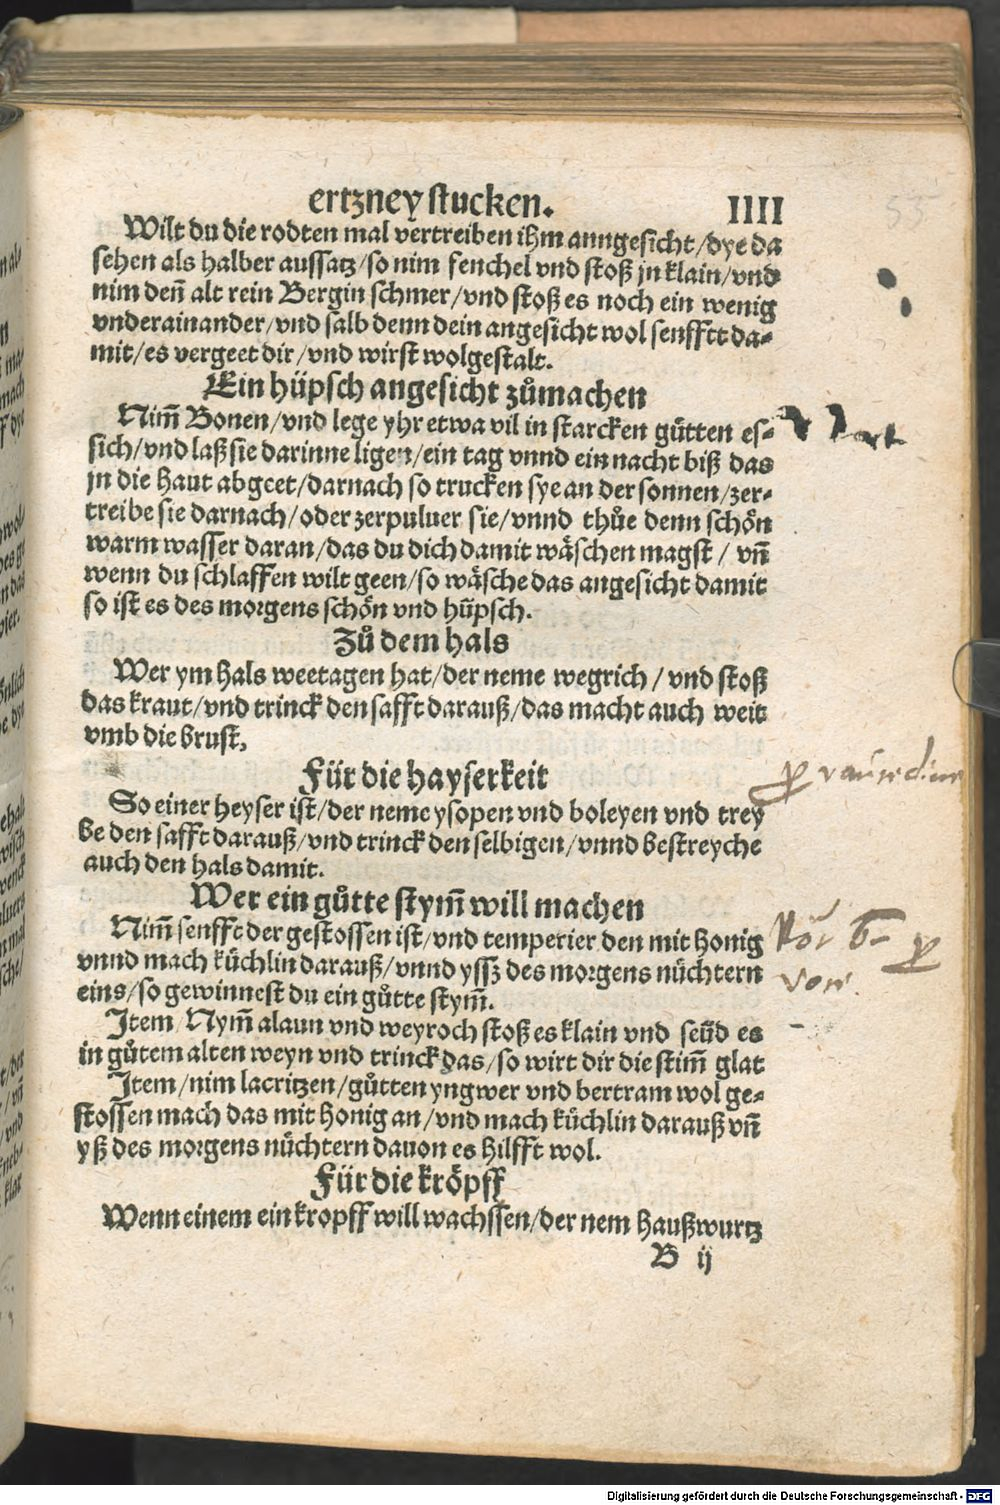 ertzney stucken. IIII
53
Wilt du die rodten mal vertreiben ihm anngesicht/dye da
sehen als halber aussatz/so nim fenchel vnd stoß jn klain/vnd
nim deñ alt rein Bergin schmer/vnd stoß es noch ein wenig
vnderainander/vnd salb denn dein angesicht wol senfftt da-
mit/es vergeet dir/vnd wirst wolgestalt.
Ein hüpsch angesicht zůmachen
Nim̃ Bonen/vnd lege yhr etwa vil in starcken gůtten es-
sich/vnd laß sie darinne ligen/ein tag vnnd ein nacht biß das
jn die haut abgeet/darnach so trucken sye an der sonnen/zer-
treibe sie darnach/oder zerpuluer sie/vnnd thůe denn schön
warm wasser daran/das du dich damit wäschen magst/vñ
wenn du schlaffen wilt geen/so wäsche das angesicht damit
so ist es des morgens schön vnd hüpsch.
Zů dem hals
Wer ym hals weetagen hat/der neme wegrich/vnd stoß
das kraut/vnd trinck den safft darauß/das macht auch weit
vmb die brust,
Für die hayserkeit
So einer heyser ist/der neme ysopen vnd boleyen vnd trey
be den safft darauß/vnd trinck den selbigen/vnnd bestreyche
auch den hals damit.
Wer ein gůtte stym̃ will machen
Nim̃ senfft der gestossen ist/vnd temperier den mit honig
vnnd mach küchlin darauß/vnnd yssz des morgens nüchtern
eins/so gewinnest du ein gůtte stym̃.
Item/Nym̃ alaun vnd weyroch stoß es klain vnd seüd es
in gůtem alten weyn vnd trinck das/so wirt dir die stim̃ glat
Item/nim lacritzen/gůtten yngwer vnd bertram wol ge-
stossen mach das mit honig an/vnd mach küchlin darauß vñ
yß des morgens nüchtern dauon es hilfft wol.
Für die kröpff
Wenn einem ein kropff will wachssen/der nem haußwurtz
B ij
Digitalisierung gefördert durch die Deutsche Forschungsgemeinschaft - DFG